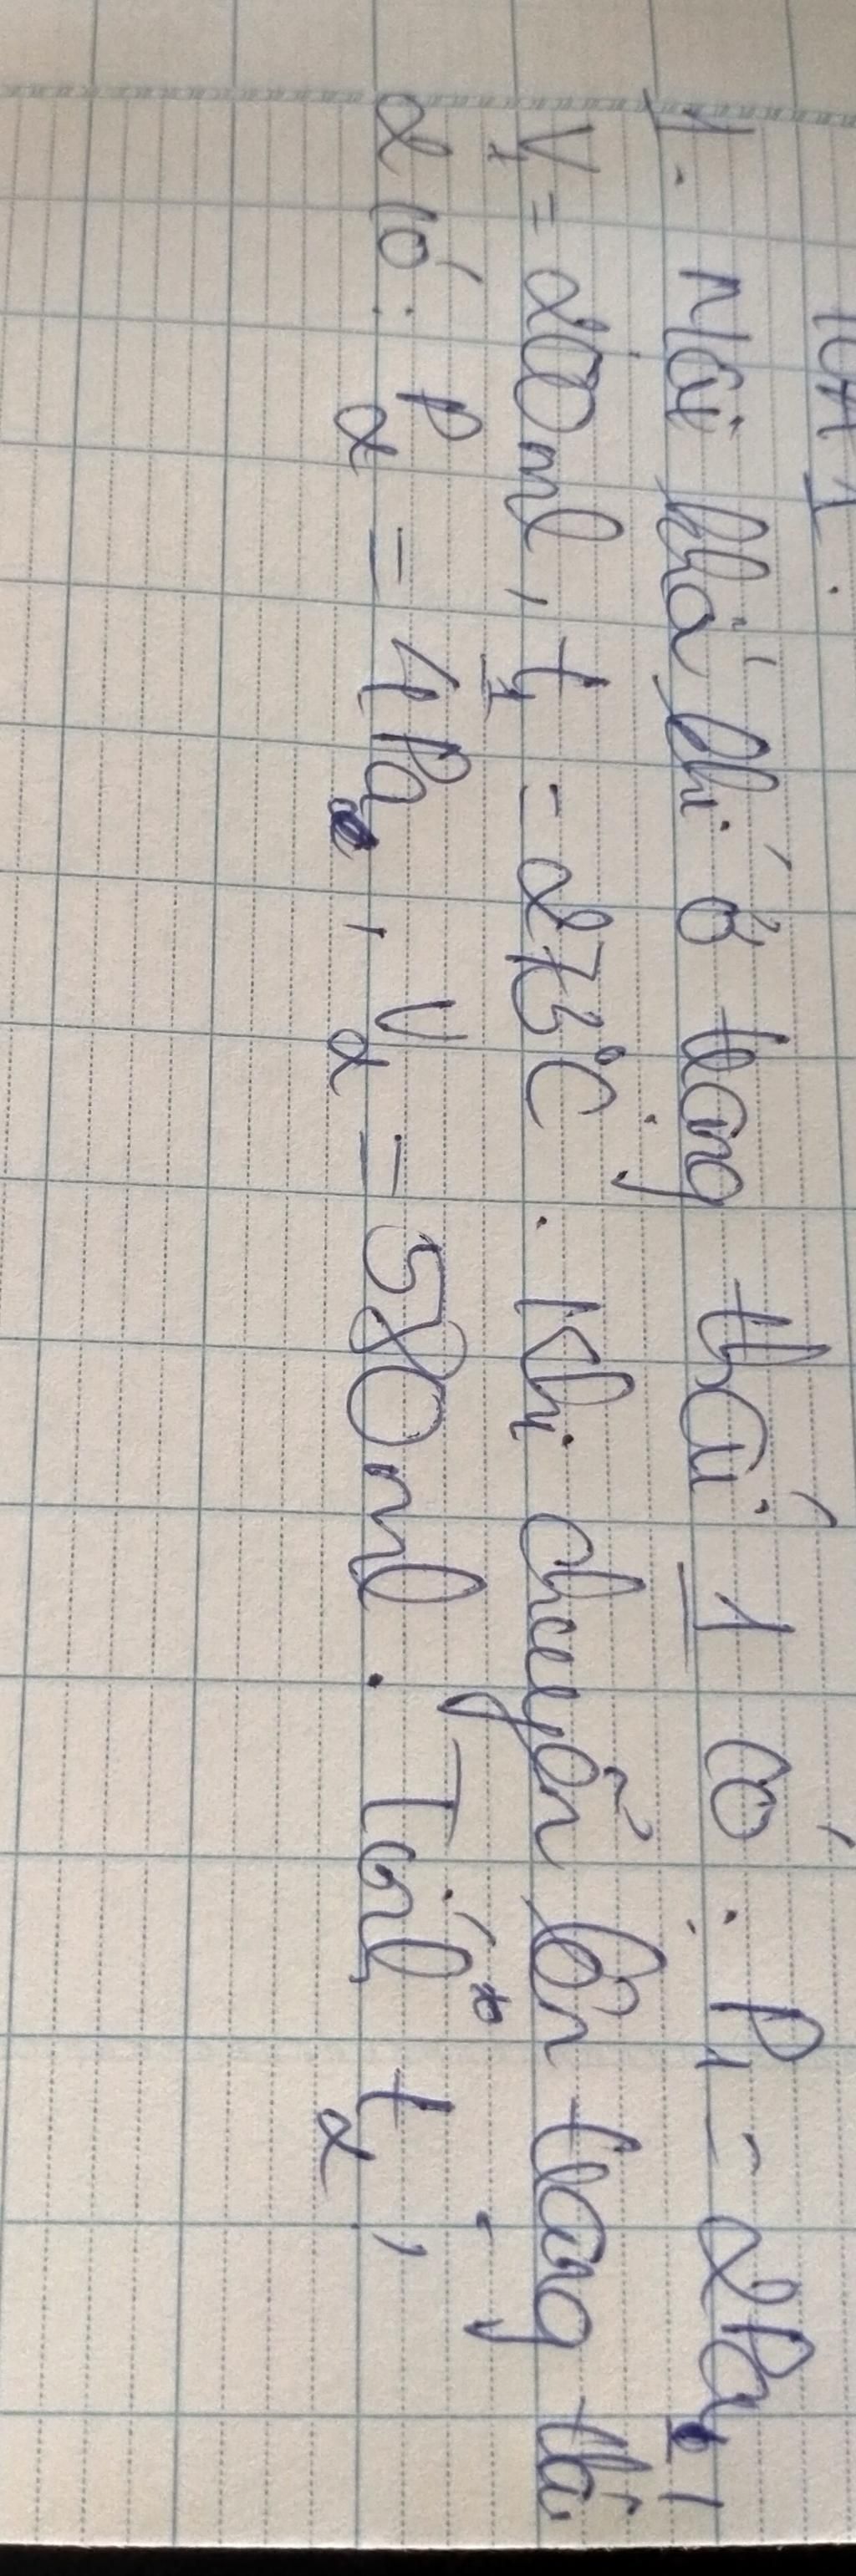 1. Một khối khí ở trạng thái 1 có: P₁ = 2Pa,
V₁ = 200ml, t₁ = 273°C. Khi chuyển lên trạng thái
2 có: P₂ = 4Pa, V₂ = 580ml. Tính t₂,